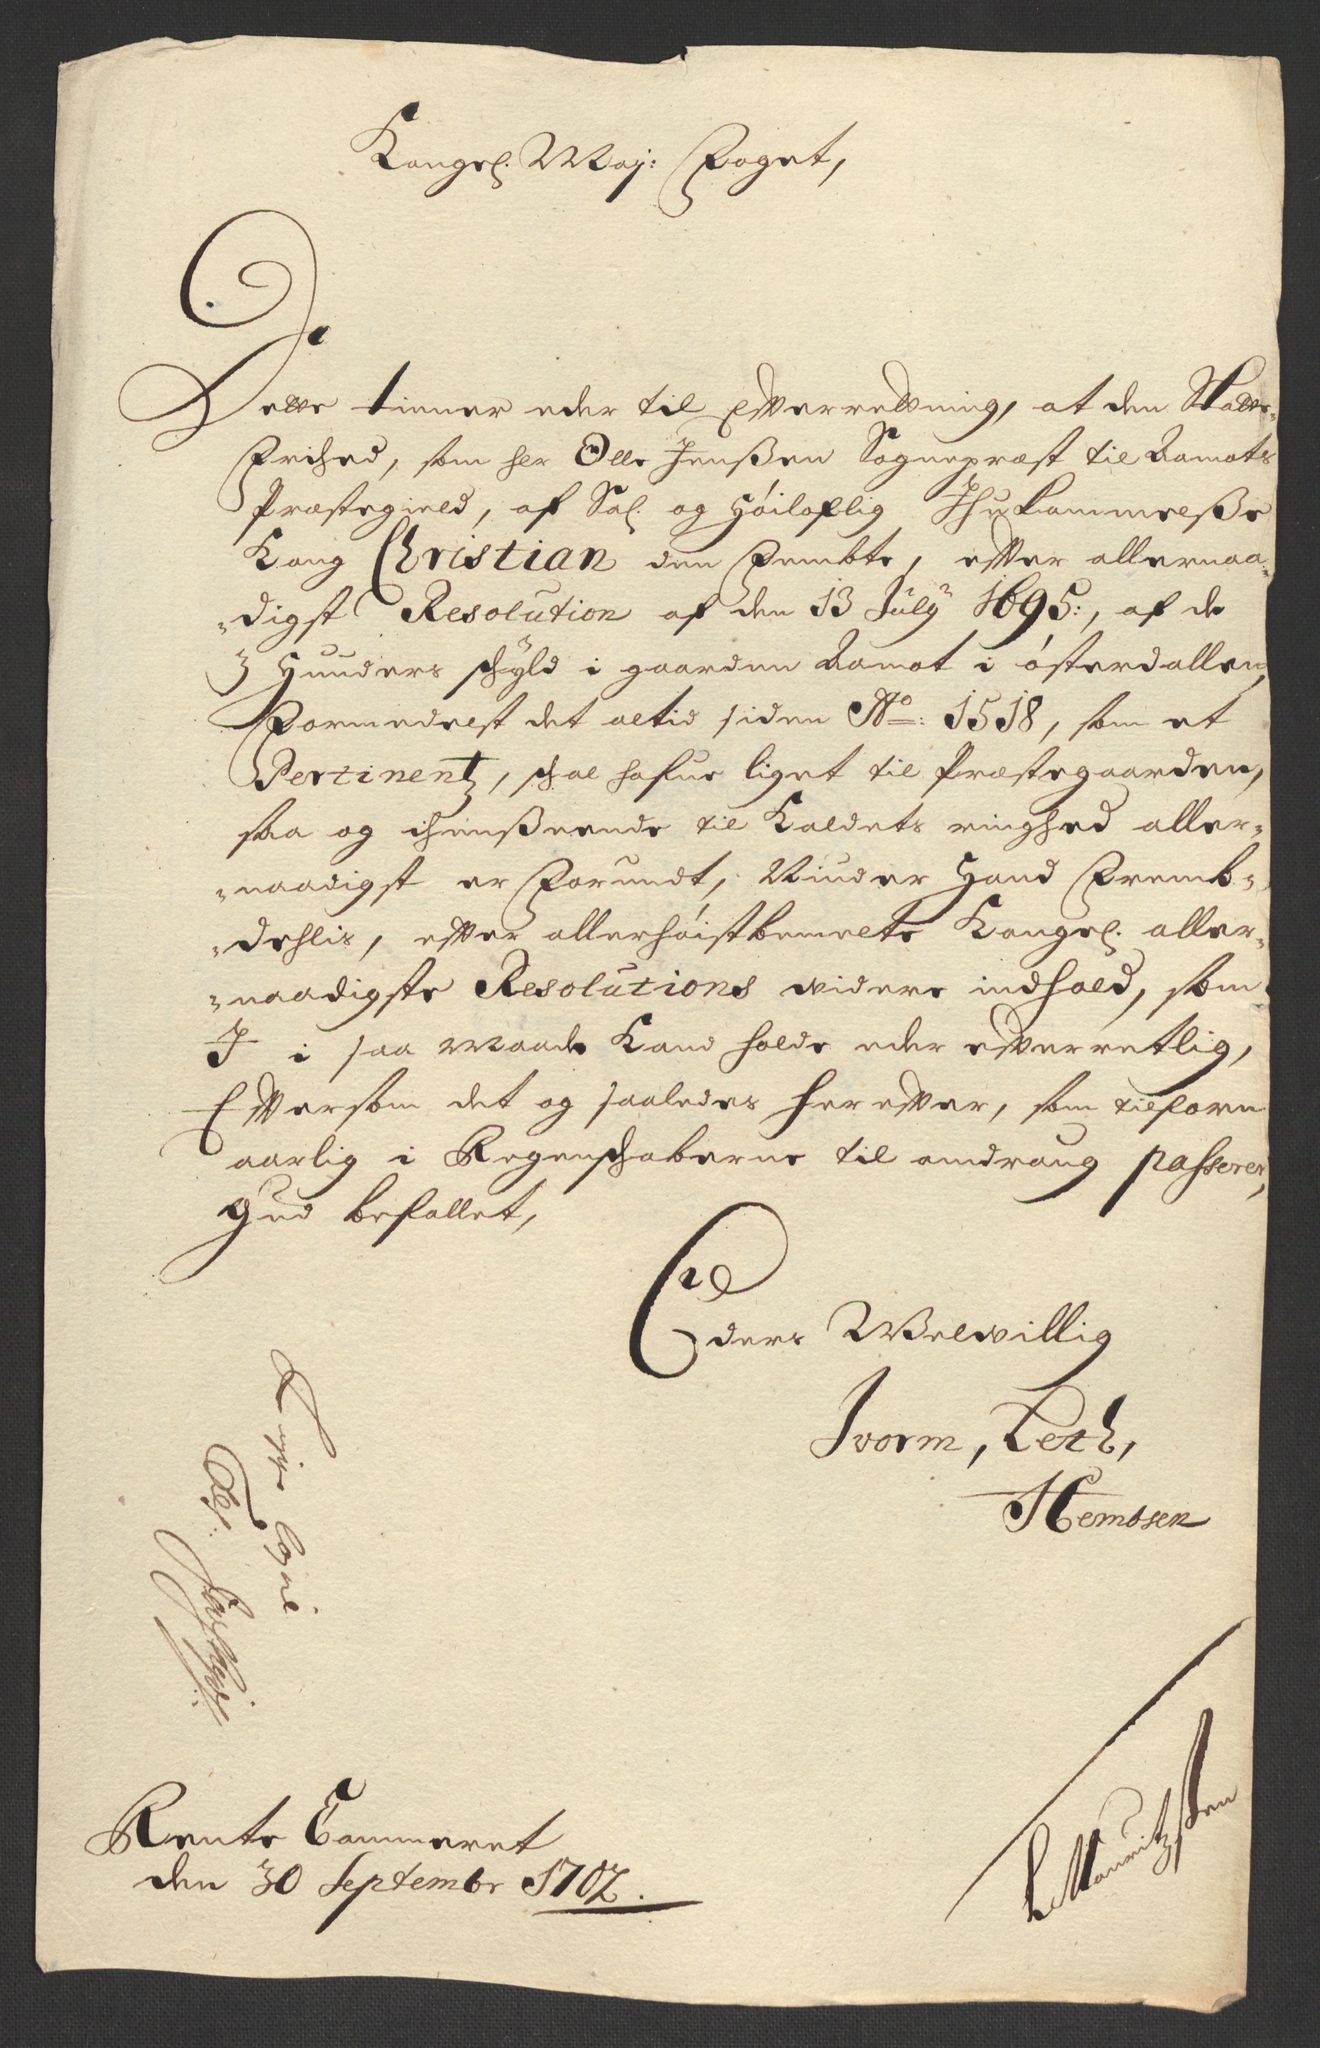 Kongel. May: Foget,
Dette tiener eder til Efterretning, at den Skatte-
Frihed, som her Olle Jenßen Sognepræst til Aamots
Præstegield, af Sal. og Høiloflig Ihukommelße
Kong Christian den Fembte, efter allernaa-
digst Resolution af den 13 July 1695:, af de
3 Hunders schyld i gaarden Aamot i østerdallen,
Formedelst det altid siden Ao: 1518, som et
Pertinentz, schal hafue liget til Præstegaarden,
saa og ihenßeende til Kaldets ringhed aller-
naadigst er Forundt, Niuder Hand Fremb-
dehlis, efter allerhøistbemelte Kongel. aller-
naadigste Resolutions videre indhold, som
I i saa Maade Kand holde eder efterretlig,
Eftersom det og saaledes her efter, som tilforn
aarlig i Regenschaberne til andraug passerer,
Gud befallet,
Eders Welvillig
Ivorm, Leth,
Hembsen
Rente Cammeret
den 30 Septembr 1702.
LMauritzßen